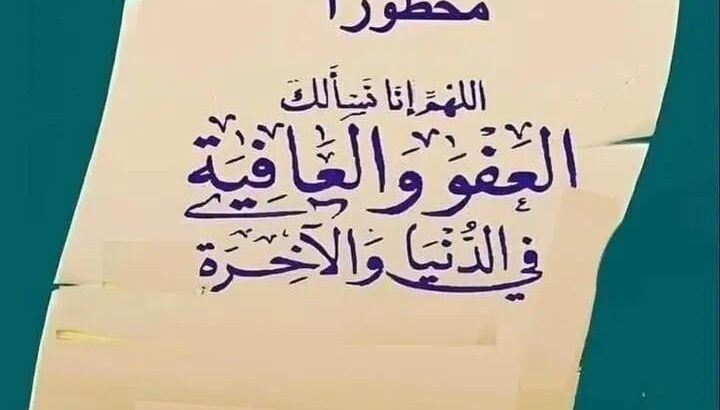 محظورا
اللهم إنا نسألك
العفو والعافية
في الدنيا والآخرة